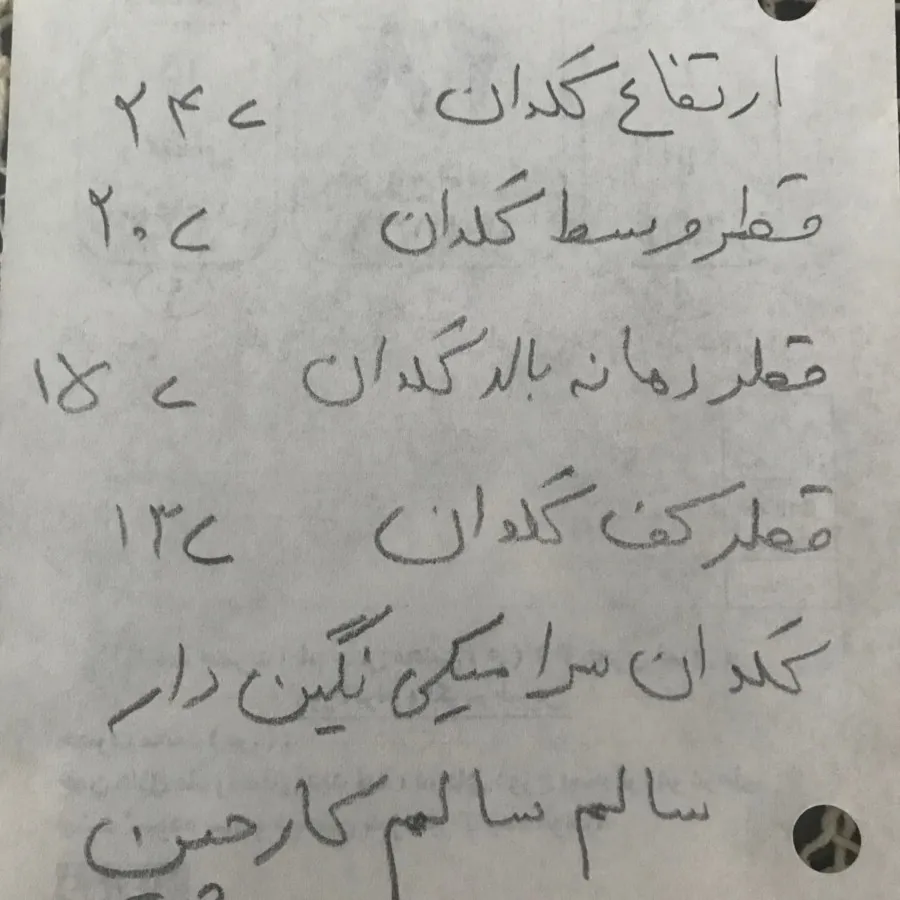 ارتفاع گلدان > ۲۴
قطر وسط گلدان > ۲۰
قطر دهانه بالا گلدان > ۱۵
قطر کف گلدان > ۱۳
گلدان سرامیکی نگین دار
سالم سالم کار چین